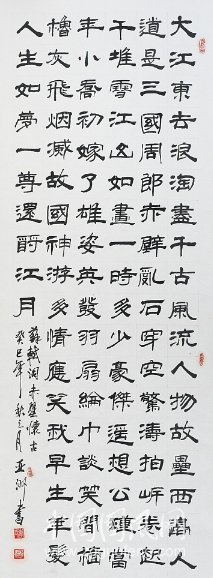 大江東去浪淘盡千古風流人物故壘西邊人
道是三國周郎赤壁亂石穿空驚濤拍岸卷起
千堆雪江山如畫一時多少豪傑遙想公瑾當
年小喬初嫁了雄姿英發羽扇綸巾談笑間檣
櫓灰飛烟滅故國神游多情應笑我早生華髮
人生如夢一尊還酹江月
蘇軾詞赤壁懷古
癸巳年秋月亞洲書